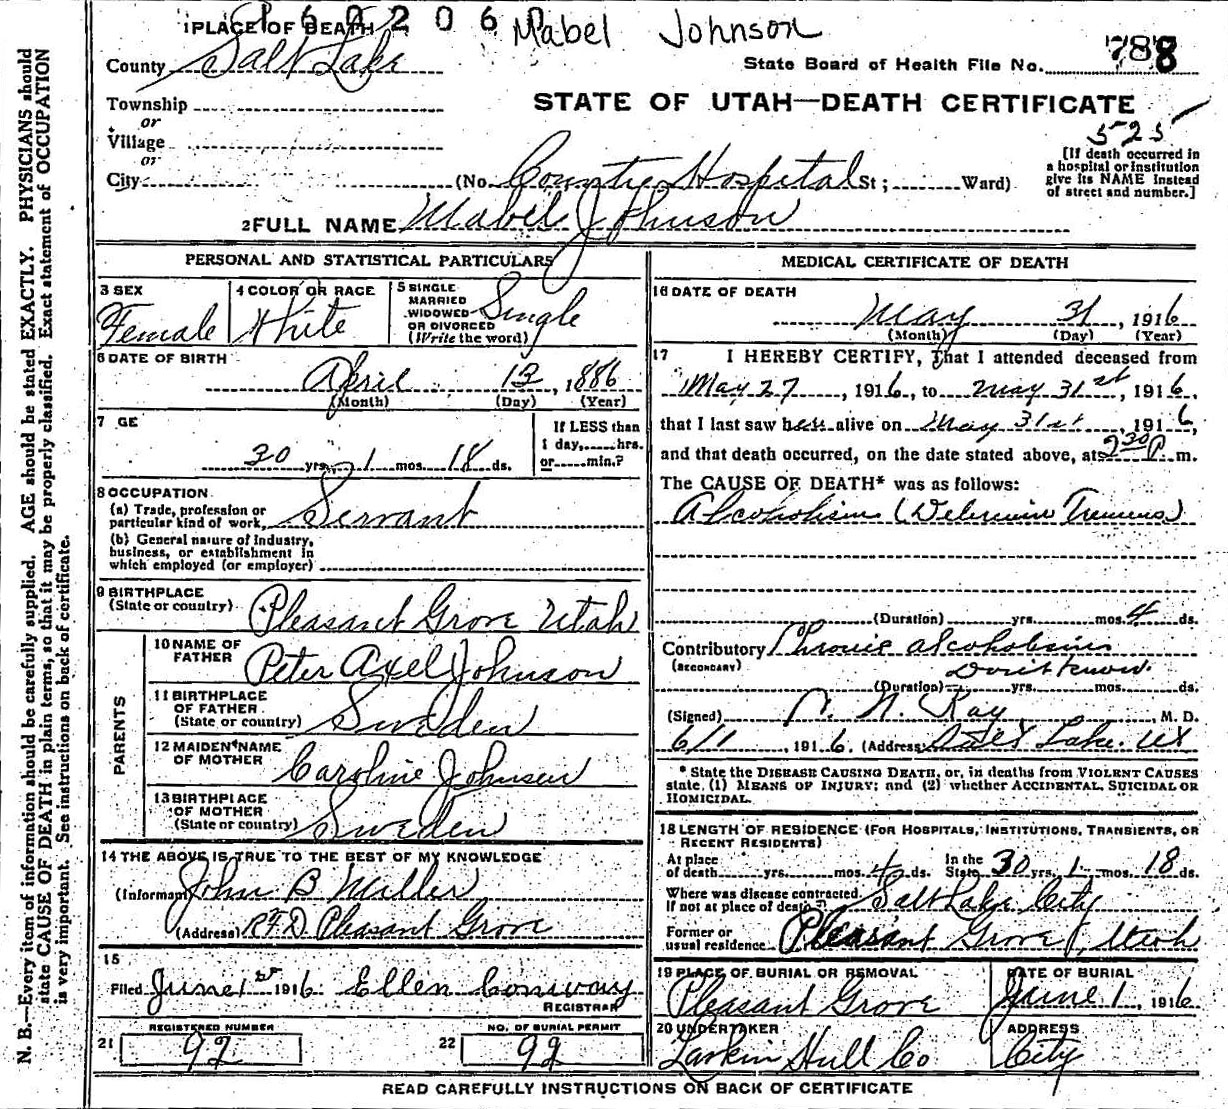 P 6 0 2 0 6 Mabel Johnson
1 PLACE OF DEATH
County Salt Lake
State Board of Health File No. 788
Township
or
Village
or
City
STATE OF UTAH—DEATH CERTIFICATE
525
[If death occurred in
a hospital or institution
give its NAME instead
of street and number.]
(No. County Hospital St; Ward)
2 FULL NAME Mabel Johnson
PERSONAL AND STATISTICAL PARTICULARS
3 SEX
Female
4 COLOR OR RACE
White
5 SINGLE
MARRIED
WIDOWED
OR DIVORCED
(Write the word)
Single
6 DATE OF BIRTH
April 13, 1886
(Month) (Day) (Year)
7 GE
30 yrs. 1 mos. 18 ds.
If LESS than
1 day, hrs.
or min.?
8 OCCUPATION
(a) Trade, profession or
particular kind of work, Servant
(b) General nature of Industry,
business, or establishment in
which employed (or employer)
9 BIRTHPLACE
(State or country) Pleasant Grove Utah
PARENTS
10 NAME OF
FATHER Peter Axel Johnson
11 BIRTHPLACE
OF FATHER
(State or country) Sweden
12 MAIDEN NAME
OF MOTHER Caroline Johnson
13 BIRTHPLACE
OF MOTHER
(State or country) Sweden
14 THE ABOVE IS TRUE TO THE BEST OF MY KNOWLEDGE
(Informant John B Miller
(Address) RFD Pleasant Grove
15
Filed June 1st 1916 Ellen Conway
REGISTRAR
REGISTERED NUMBER
21 92
NO. OF BURIAL PERMIT
22 92
MEDICAL CERTIFICATE OF DEATH
16 DATE OF DEATH
May 31, 1916
(Month) (Day) (Year)
17 I HEREBY CERTIFY, That I attended deceased from
May 27, 1916, to May 31st, 1916,
that I last saw her alive on May 31st, 1916,
and that death occurred, on the date stated above, at 2 30 P m.
The CAUSE OF DEATH* was as follows:
Alcoholism (Delerium Tremens)
(Duration) yrs. mos. 4 ds.
Contributory Chronic alcoholism
(SECONDARY) Don't know.
(Duration) yrs. mos. ds.
(Signed) Ray, M. D.
6/1, 1916. (Address) Salt Lake. Ut
* State the DISEASE CAUSING DEATH, or, in deaths from VIOLENT CAUSES
state (1) MEANS OF INJURY; and (2) whether ACCIDENTAL, SUICIDAL OR
HOMICIDAL.
18 LENGTH OF RESIDENCE (FOR HOSPITALS, INSTITUTIONS, TRANSIENTS, OR
RECENT RESIDENTS)
At place
of death yrs. mos. 4 ds. In the
State 30 yrs. 1 mos. 18 ds.
Where was disease contracted,
If not at place of death? Salt Lake City
Former or
usual residence Pleasant Grove, Utah
19 PLACE OF BURIAL OR REMOVAL
Pleasant Grove
DATE OF BURIAL
June 1, 1916
20 UNDERTAKER
Larkin Hull Co
ADDRESS
City
READ CAREFULLY INSTRUCTIONS ON BACK OF CERTIFICATE
N. B.—Every item of information should be carefully supplied. AGE should be stated EXACTLY. PHYSICIANS should
state CAUSE OF DEATH in plain terms, so that it may be properly classified. Exact statement of OCCUPATION
is very important. See instructions on back of certificate.